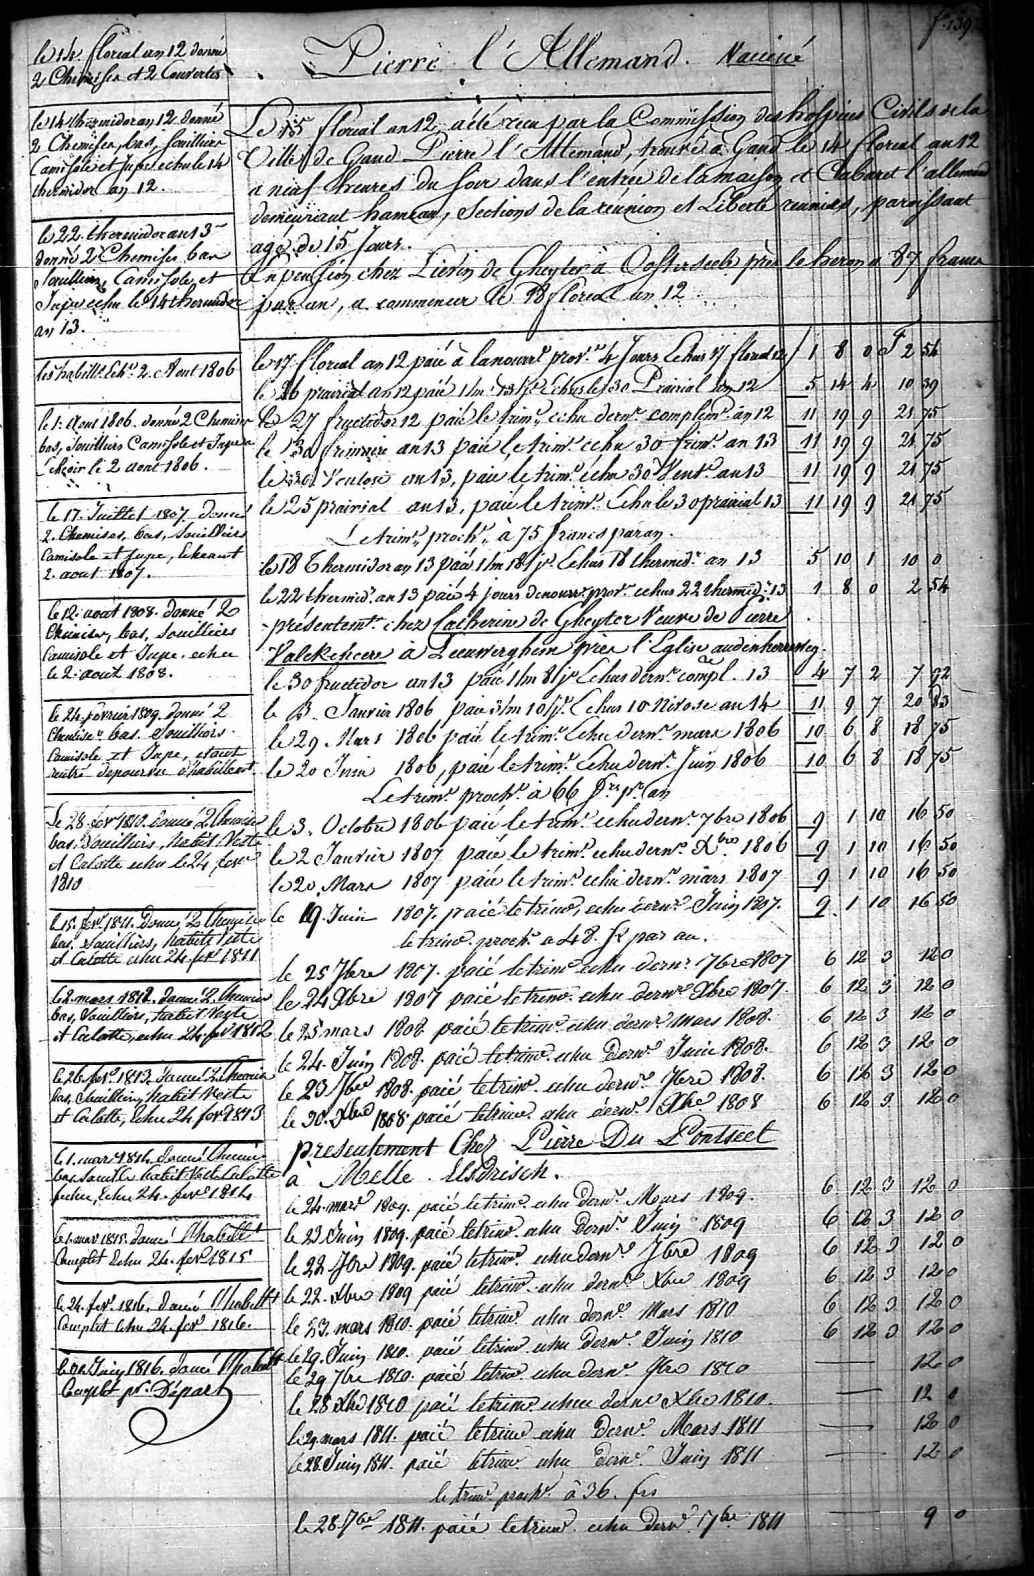 f. 139
Pierre l'Allemand. Vacciné
le 14 floreal an 12 donné
2 Chemises et 2 Couvertes
le 14 thermidor an 12 donné
2 Chemises, bas, souilliers
Camisole et Jupe echu le 14
thermidor an 12.
le 22 thermidor an 13
donné 2 Chemises bas
Souilliers, Camisole, et
Jupe echu le 14 thermidor
an 13.
les habill.ts echus 2. Aout 1806
le 1. Aout 1806. donné 2 Chemises
bas, souilliers Camisole et Jupe a
echeoir le 2 aout 1806.
le 17. Juillet 1807. donné
2. Chemises, bas, Souilliers
Camisole et Jupe, echeant
2. aout 1807.
le 12. aout 1808. donné 2
Chemises, bas, souilliers
Camisole et Jupe. echu
le 2. aout 1808.
le 24. fevrier 1809. donné 2
Chemises bas. Souilliers.
Camisole et Jupe, etant
rentré depourvu d'habillem.t
Le 28. fevr 1810. donné 2 Chemises
bas, Souilliers, habit Veste
et Calotte echu le 24 fevr
1810
le 15. fevr. 1811. Donné, 2 Chemises
bas, Souilliers, habit Veste
et Calotte echu 24 fevr 1811
le 2. mars 1812. donné 2 Chemises
bas, Souilliers, habit Veste
et Calotte, echu 24 fevr 1812
le 26 fevr. 1813. donné 2 Chemises
bas, Souilliers, habit Veste
et Calotte, echu 24 fevr 1813
le 1. mars 1814. donné Chemises
bas Souilliers habit Veste Calotte
echu 24. fevr 1814
le 1. mars 1815. donné l'habillt
Complet echu 24. fevr 1815
le 24. fevr. 1816. donné l'habillt
Complet echu 24. fevr 1816.
Juin 1816. donné l'habillt
Complet pr. Départ
Le 15 floreal an 12. a été recu par la Commission des hospices Civils de la
Ville de Gand Pierre l'Allemand, trouvé à Gand le 14 floreal an 12
a neuf heures du soir dans l'entrée de la maison et Cabaret l'allemand
demeurant hameau, Sections de la reunion et Liberté reunies, paroissant
agé de 15 Jours.
En pension chez Lievin de Gheyter à Oosterzeele près le heron a 87 francs
par an, a commencer le 18 floreal an 12.
le 17 floreal an 12 paié à la nourr.e prov.e 4 Jours echus 17 floreal 12 1 8 0 F 2 54
le 26 prairial an 12 paié 1 m 13 j.s echus le 30 Prairial an 12 5 14 4 10 39
le 27 fructidor 12 paié le trim.e echu dern.r complem.e an 12 11 19 9 21 75
le 30 frimaire an 13 paié le trim.e echu 30 frim.e an 13 11 19 9 21 75
le 30 Ventose an 13, paié le trim.e echu 30 Vent.e an 13 11 19 9 21 75
le 25 prairial an 13, paié le trim.e echu le 30 prairial 13 11 19 9 21 75
Le trim.e proch.n à 75 francs par an.
le 18 Thermidor an 13 paié 1 m 18 j.s echus 18 thermid.r an 13 5 10 1 10 0
le 22 thermid.r an 13 paié 4 jours de nourr.e prov.e echus 22 thermid.r 13 1 8 0 2 54
presentemt. chez Catherine de Gheyter Veuve de Pierre
Valckeneere à Leeuwerghem près l'Eglise audenhovewg.
le 30 fructidor an 13 paié 1 m 8 j.s echus dern.r compl.de 13 4 7 2 7 92
le 3. Janvier 1806 paié 3 m 10 j.s echus 10 Nivose an 14 11 9 7 20 83
le 29 Mars 1806 paié le trim.e echu dern.r mars 1806 10 6 8 18 75
le 20 Juin 1806, paié le trim.e echu dern.r Juin 1806 10 6 8 18 75
Le trim.e proch.n à 66 f.cs p.r an
le 3. Octobre 1806 paié le trim.e echu dern.r 7bre 1806 9 1 10 16 50
le 2 Janvier 1807 paié le trim.e echu dern.r Xbre 1806 9 1 10 16 50
le 20 Mars 1807 paié le trim.e echu dern.r mars 1807 9 1 10 16 50
le 19 Juin 1807. paié le trim.e echu dern.r Juin 1807. 9 1 10 16 50
le trim.e proch.n a 48. f. par an.
le 25 7bre 1807. paié le trim.e echu dern.r 7bre 1807 6 12 3 12 0
le 24 Xbre 1807 paié le trim.e echu dern.r Xbre 1807. 6 12 3 12 0
le 25 mars 1808 paié le trim.e echu dern.r Mars 1808. 6 12 3 12 0
le 24. Juin 1808. paié le trim.e echu dern.r Juin 1808. 6 12 3 12 0
le 23 7bre 1808. paié le trim.e echu dern.r 7bre 1808. 6 12 3 12 0
le 30. Xbre 1808 paié le trim.e echu dern.r Xbre 1808 6 12 3 12 0
presentement Chez Pierre Du Pontseel
à Melle
le 24. mars 1809. paié le trim.e echu dern.r Mars 1809. 6 12 3 12 0
le 23 Juin 1809. paié le trim.e echu dern.r Juin 1809 6 12 3 12 0
le 22 7bre 1809. paié le trim.e echu dern.r 7bre 1809 6 12 3 12 0
le 22. Xbre 1809 paié le trim.e echu dern.r Xbre 1809 6 12 3 12 0
le 23. mars 1810. paié le trim.e echu dern.r Mars 1810 6 12 3 12 0
le 29. Juin 1810. paié le trim.e echu dern.r Juin 1810 6 12 3 12 0
le 29 7bre 1810. paié le trim.e echu dern.r 7bre 1810 — 12 0
le 28 Xbre 1810 paié le trim.e echu dern.r Xbre 1810. — 12 0
le 29. mars 1811. paié le trim.e echu dern.r Mars 1811 — 12 0
le 28. Juin 1811. paié le trim.e echu dern.r Juin 1811 — 12 0
le trim.e proch.n à 36. frs
le 28. 7bre 1811. paié le trim.e echu dern.r 7bre 1811 — 9 0